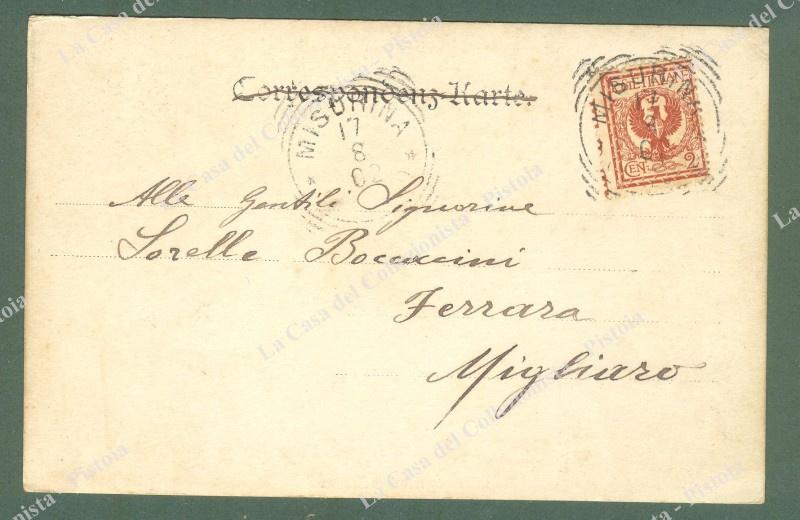 Correspondenz-Karte.
MISURINA
17
8
MISURINA
17
8
CEN. 2
Alle Gentili Signorine
Sorelle Boccaccini
Ferrara
Migliaro
La Casa del Collezionista - Pistoia